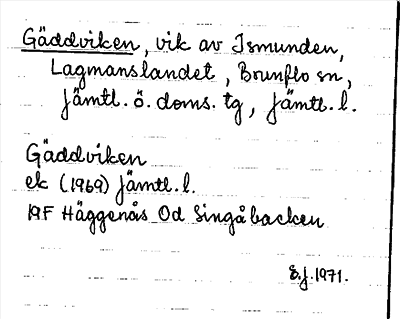 Gäddviken, vik av Ismunden,
Lagmanslandet, Brunflo sn,
Jämtl. ö. doms. tg, Jämtl. l.
Gäddviken
ek (1969) Jämtl. l.
19F Häggenås Od Singåbacken
S.J. 1971.